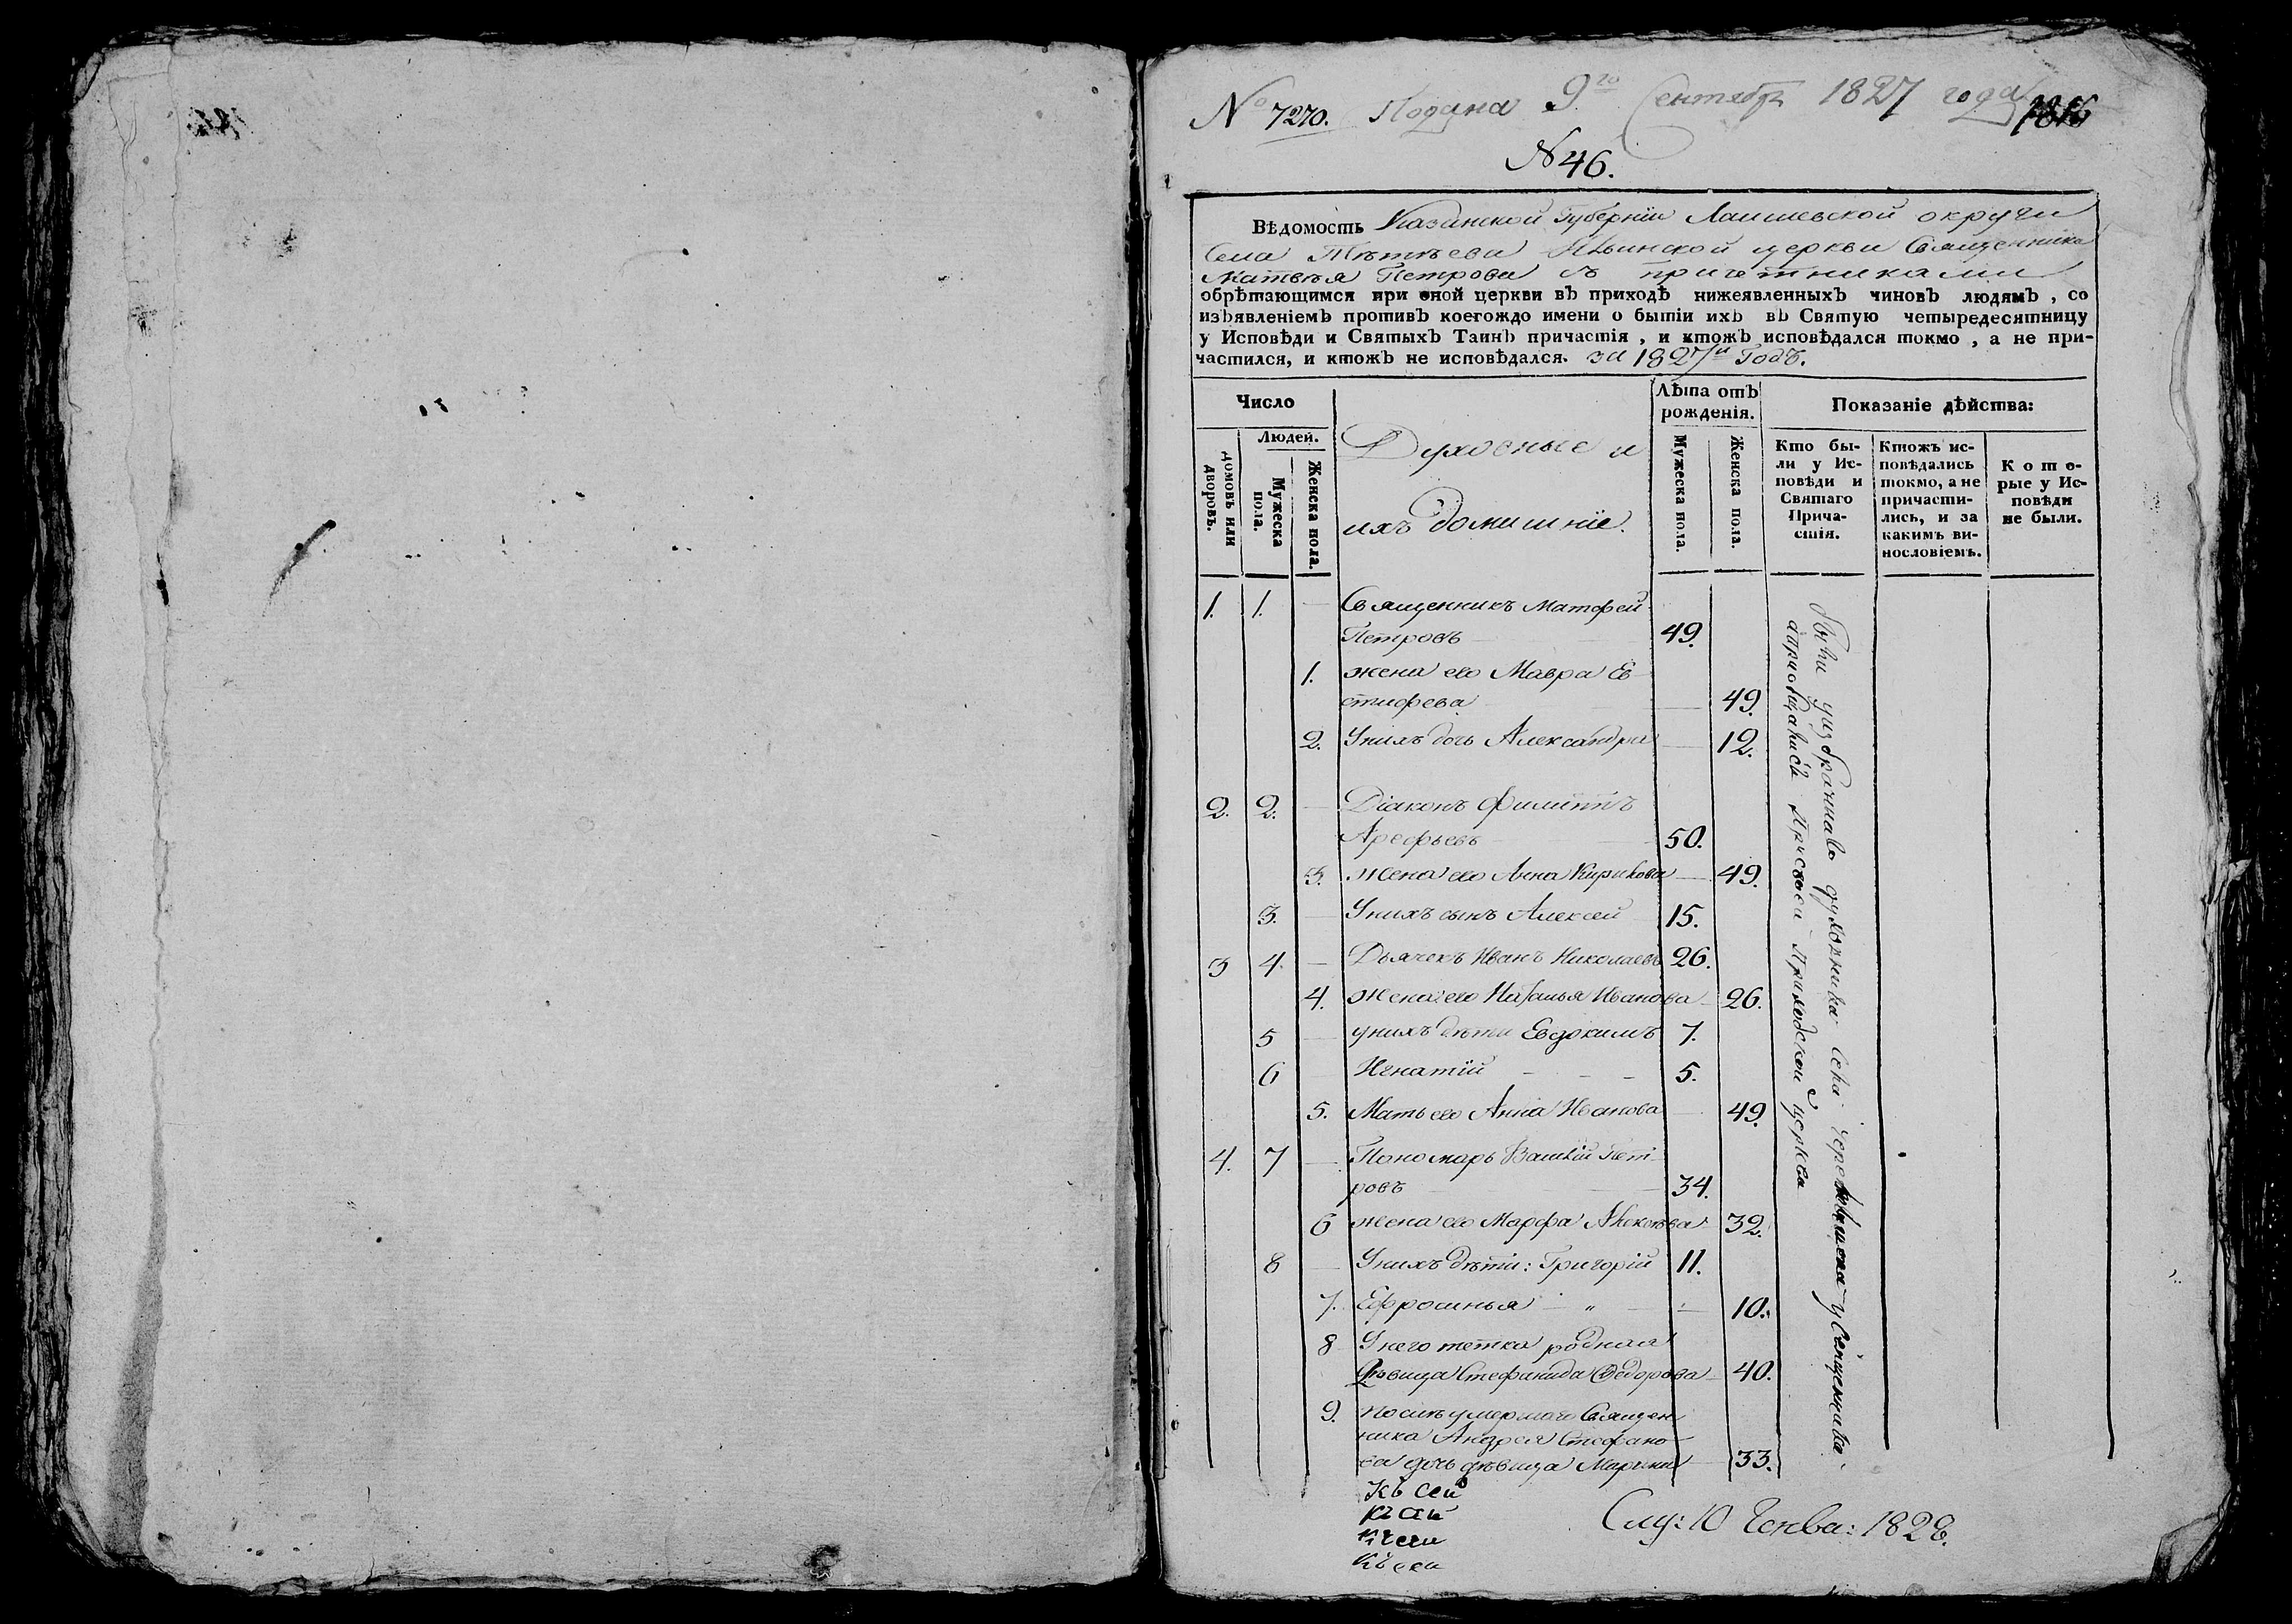 № 7270. Подана 9го Сентября 1827 года
N 46.
Вѣдомость Казанской Губерніи Лаишевской округи
Села Тѣтѣева Ильинской церкви Священника
Матвѣя Петрова съ причетниками
обрѣтающимся при оной церкви въ приходѣ нижеявленныхъ чиновъ людямъ, со
изъявленіемъ противъ коегождо имени о бытіи ихъ въ Святую четыредесятницу
у Исповѣди и Святыхъ Таинъ причастія, и ктожъ исповѣдался токмо, а не при-
частился, и ктожъ не исповѣдался. за 1827й Годъ.
Число
Людей.
Домовъ или дворовъ.
Мужеска пола.
Женска пола.
Духовные и
ихъ домашніе.
Лѣта отъ
рожденія.
Мужеска пола.
Женска пола.
Показаніе дѣйства:
Кто бы-
ли у Ис-
повѣди и
Святаго
Прича-
стія.
Ктожъ ис-
повѣдались
токмо, а не
причасти-
лись, и за
какимъ ви-
нословіемъ.
Кото-
рые у Ис-
повѣди
не были.
1. 1. Священникъ Матфей
Петровъ 49.
1. жена его Мавра Ев
стифева 49.
2. Унихъ дочь Александра 12.
2. 2. Діаконъ Филиппъ
Арефьевъ 50.
3. Жена его Анна Кирилова 49.
3. Унихъ сынъ Алексей 15.
3 4. Дьячекъ Иванъ Николаевъ 26.
4. Жена его Наталья Иванова 26.
5 унихъ дѣти Евдокимъ 7.
6 Игнатій 5.
5. Мать его Анна Иванова 49.
4. 7 Пономарь Василій Пет
ровъ 34.
6 жена его Марфа 32.
8 Унихъ дѣти: Григорій 11.
7. Ефросинья 10.
8 Унего тетка родная
Дѣвица Стефанида Федорова 40.
9. Послѣ умершаго Священ
ника Андрея Стефано
ва дочь дѣвица Марина 33.
Были духовника села Священника
а приобщались при своей приходской церкви
Къ сей
Къ сей
Къ сей
Къ сей
Слу: 10 Генва: 1828.